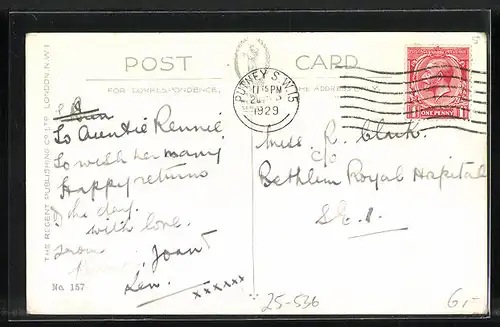 POST CARD
FOR CORRESPONDENCE
THE ADDRESS ONLY
THE REGENT PUBLISHING CO LTD LONDON, N.W.1
PUTNEY S.W.15
PM
1929
ONE PENNY
To Auntie Rennie
To wish her many
Happy returns
of the day.
with love.
from
Joan &
Len.
xxxxxx
No 157
Miss R. Clark.
c/o
Bethlem Royal Hospital
S.E.1.
25-536
6,-